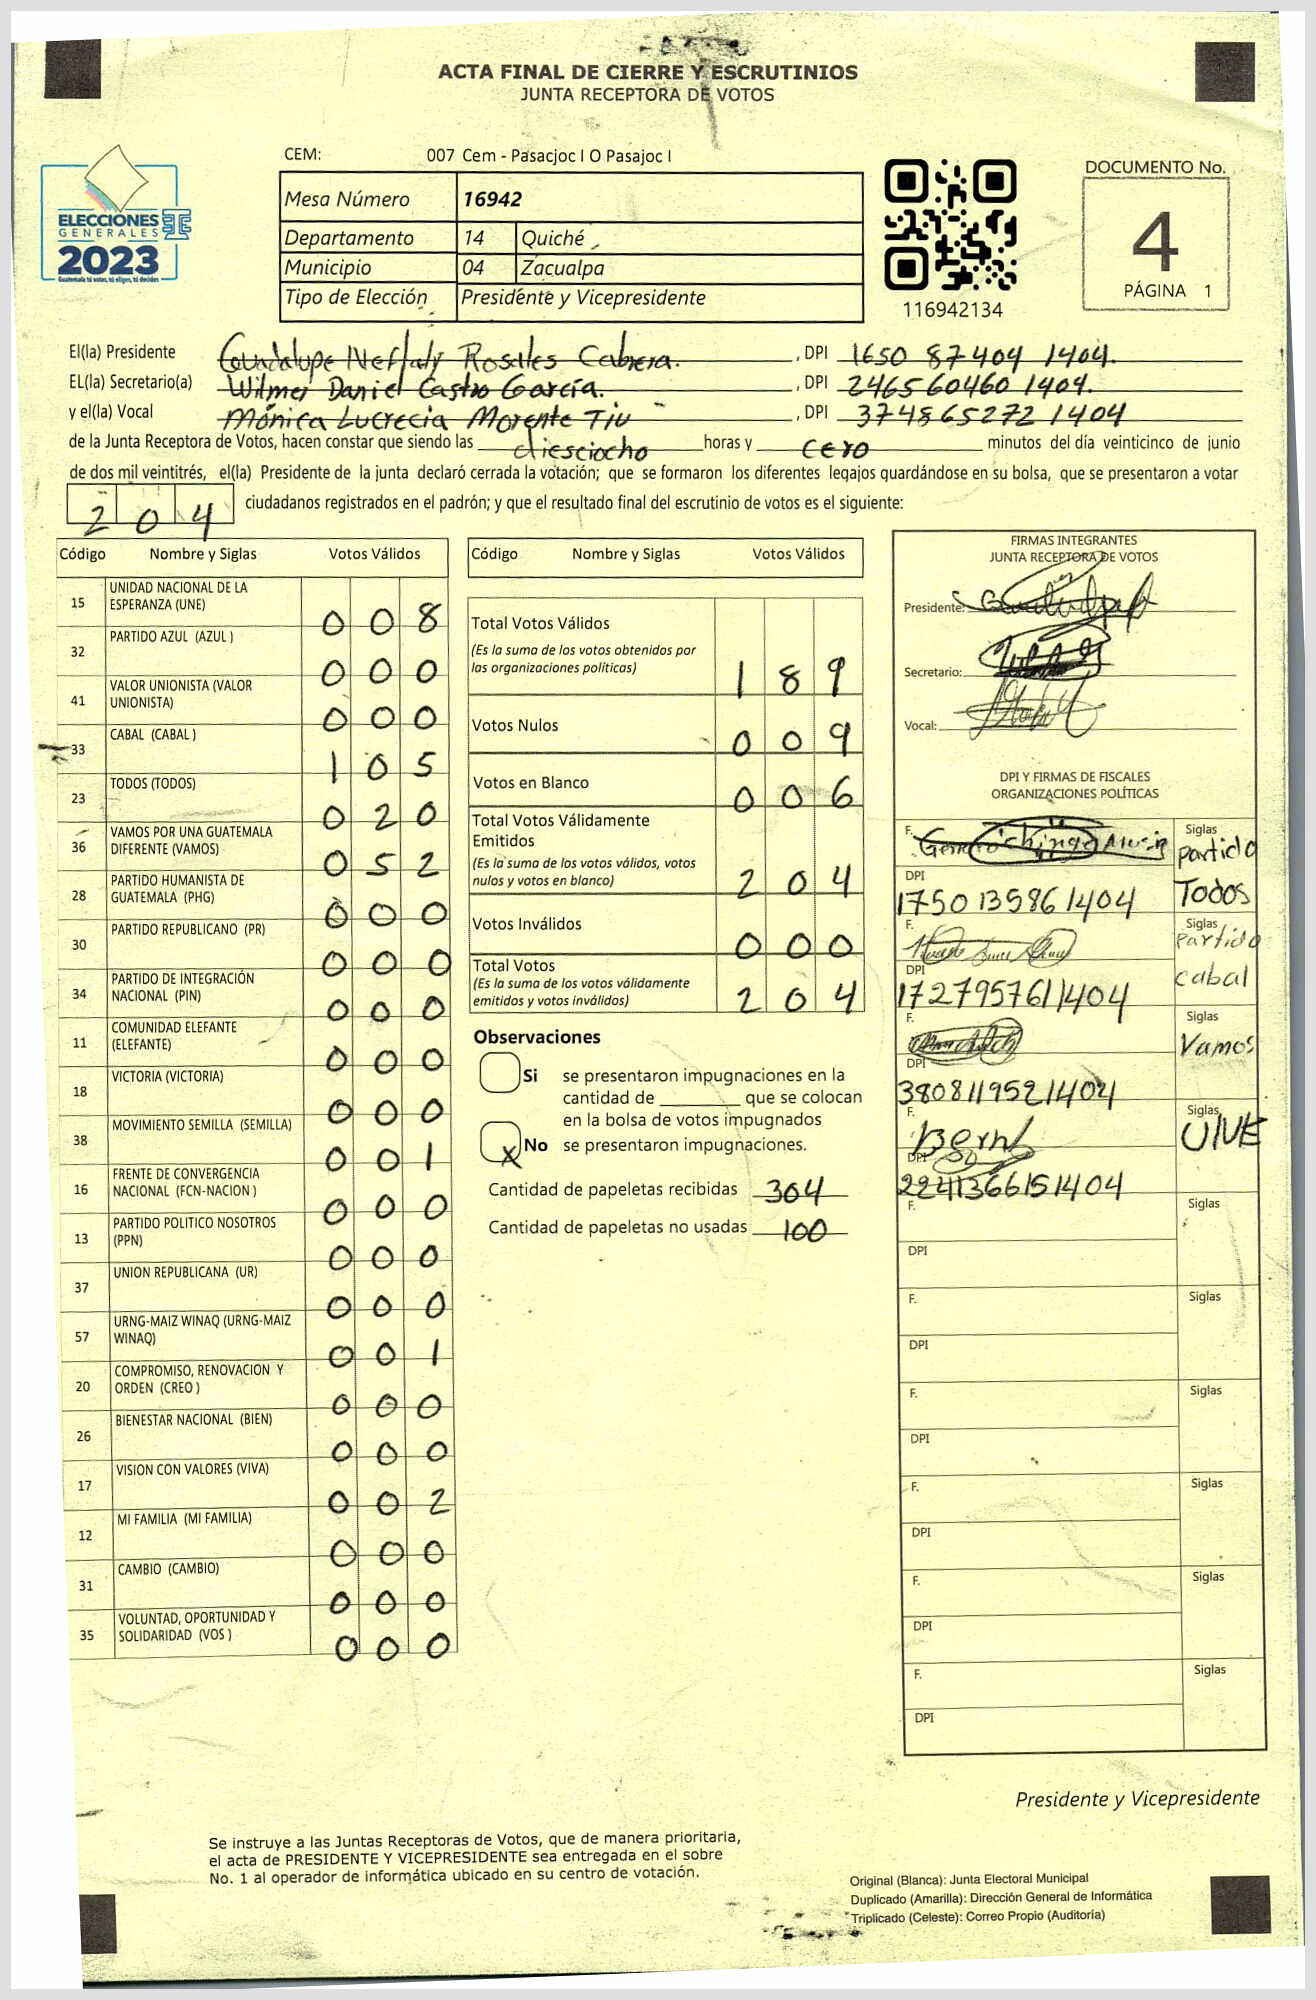 ACTA FINAL DE CIERRE Y ESCRUTINIOS
JUNTA RECEPTORA DE VOTOS
CEM: 007 Cem - Pasacjoc I O Pasajoc I
ELECCIONES
GENERALES
2023
Guatemala tú votas, tú eliges, tú decides
Mesa Número 16942
Departamento 14 Quiché
Municipio 04 Zacualpa
Tipo de Elección Presidente y Vicepresidente
116942134
DOCUMENTO No.
4
PÁGINA 1
El(la) Presidente Guadalupe Neftaly Rosales Cabrera. , DPI 1650 87404 1404.
EL(la) Secretario(a) Wilmer Daniel Castro García. , DPI 246560460 1404.
y el(la) Vocal Mónica Lucrecia Morente Tiu , DPI 374865272 1404
de la Junta Receptora de Votos, hacen constar que siendo las diesciocho horas y cero minutos del día veinticinco de junio
de dos mil veintitrés, el(la) Presidente de la junta declaró cerrada la votación; que se formaron los diferentes legajos guardándose en su bolsa, que se presentaron a votar
204 ciudadanos registrados en el padrón; y que el resultado final del escrutinio de votos es el siguiente:
Código Nombre y Siglas Votos Válidos
15 UNIDAD NACIONAL DE LA ESPERANZA (UNE) 008
32 PARTIDO AZUL (AZUL ) 000
41 VALOR UNIONISTA (VALOR UNIONISTA) 000
33 CABAL (CABAL ) 105
23 TODOS (TODOS) 020
36 VAMOS POR UNA GUATEMALA DIFERENTE (VAMOS) 052
28 PARTIDO HUMANISTA DE GUATEMALA (PHG) 000
30 PARTIDO REPUBLICANO (PR) 000
34 PARTIDO DE INTEGRACIÓN NACIONAL (PIN) 000
11 COMUNIDAD ELEFANTE (ELEFANTE) 000
18 VICTORIA (VICTORIA) 000
38 MOVIMIENTO SEMILLA (SEMILLA) 001
16 FRENTE DE CONVERGENCIA NACIONAL (FCN-NACION ) 000
13 PARTIDO POLITICO NOSOTROS (PPN) 000
37 UNION REPUBLICANA (UR) 000
57 URNG-MAIZ WINAQ (URNG-MAIZ WINAQ) 001
20 COMPROMISO, RENOVACION Y ORDEN (CREO ) 000
26 BIENESTAR NACIONAL (BIEN) 000
17 VISION CON VALORES (VIVA) 002
12 MI FAMILIA (MI FAMILIA) 000
31 CAMBIO (CAMBIO) 000
35 VOLUNTAD, OPORTUNIDAD Y SOLIDARIDAD (VOS ) 000
Código Nombre y Siglas Votos Válidos
Total Votos Válidos 189
(Es la suma de los votos obtenidos por
las organizaciones políticas)
Votos Nulos 009
Votos en Blanco 006
Total Votos Válidamente
Emitidos
(Es la suma de los votos válidos, votos
nulos y votos en blanco) 204
Votos Inválidos 000
Total Votos
(Es la suma de los votos válidamente
emitidos y votos inválidos) 204
Observaciones
Si se presentaron impugnaciones en la
cantidad de ________ que se colocan
en la bolsa de votos impugnados
X No se presentaron impugnaciones.
Cantidad de papeletas recibidas 304
Cantidad de papeletas no usadas 100
FIRMAS INTEGRANTES
JUNTA RECEPTORA DE VOTOS
Presidente:
Secretario:
Vocal:
DPI Y FIRMAS DE FISCALES
ORGANIZACIONES POLÍTICAS
F. Siglas partido Todos
DPI 1750 13586 1404
F. Siglas Partido cabal
DPI 172795761 1404
F. Siglas Vamos
DPI 380811952 1404
F. Siglas UNE
DPI 224136615 1404
F. Siglas
DPI
F. Siglas
DPI
F. Siglas
DPI
F. Siglas
DPI
F. Siglas
DPI
F. Siglas
DPI
Presidente y Vicepresidente
Se instruye a las Juntas Receptoras de Votos, que de manera prioritaria,
el acta de PRESIDENTE Y VICEPRESIDENTE sea entregada en el sobre
No. 1 al operador de informática ubicado en su centro de votación.
Original (Blanca): Junta Electoral Municipal
Duplicado (Amarilla): Dirección General de Informática
Triplicado (Celeste): Correo Propio (Auditoría)